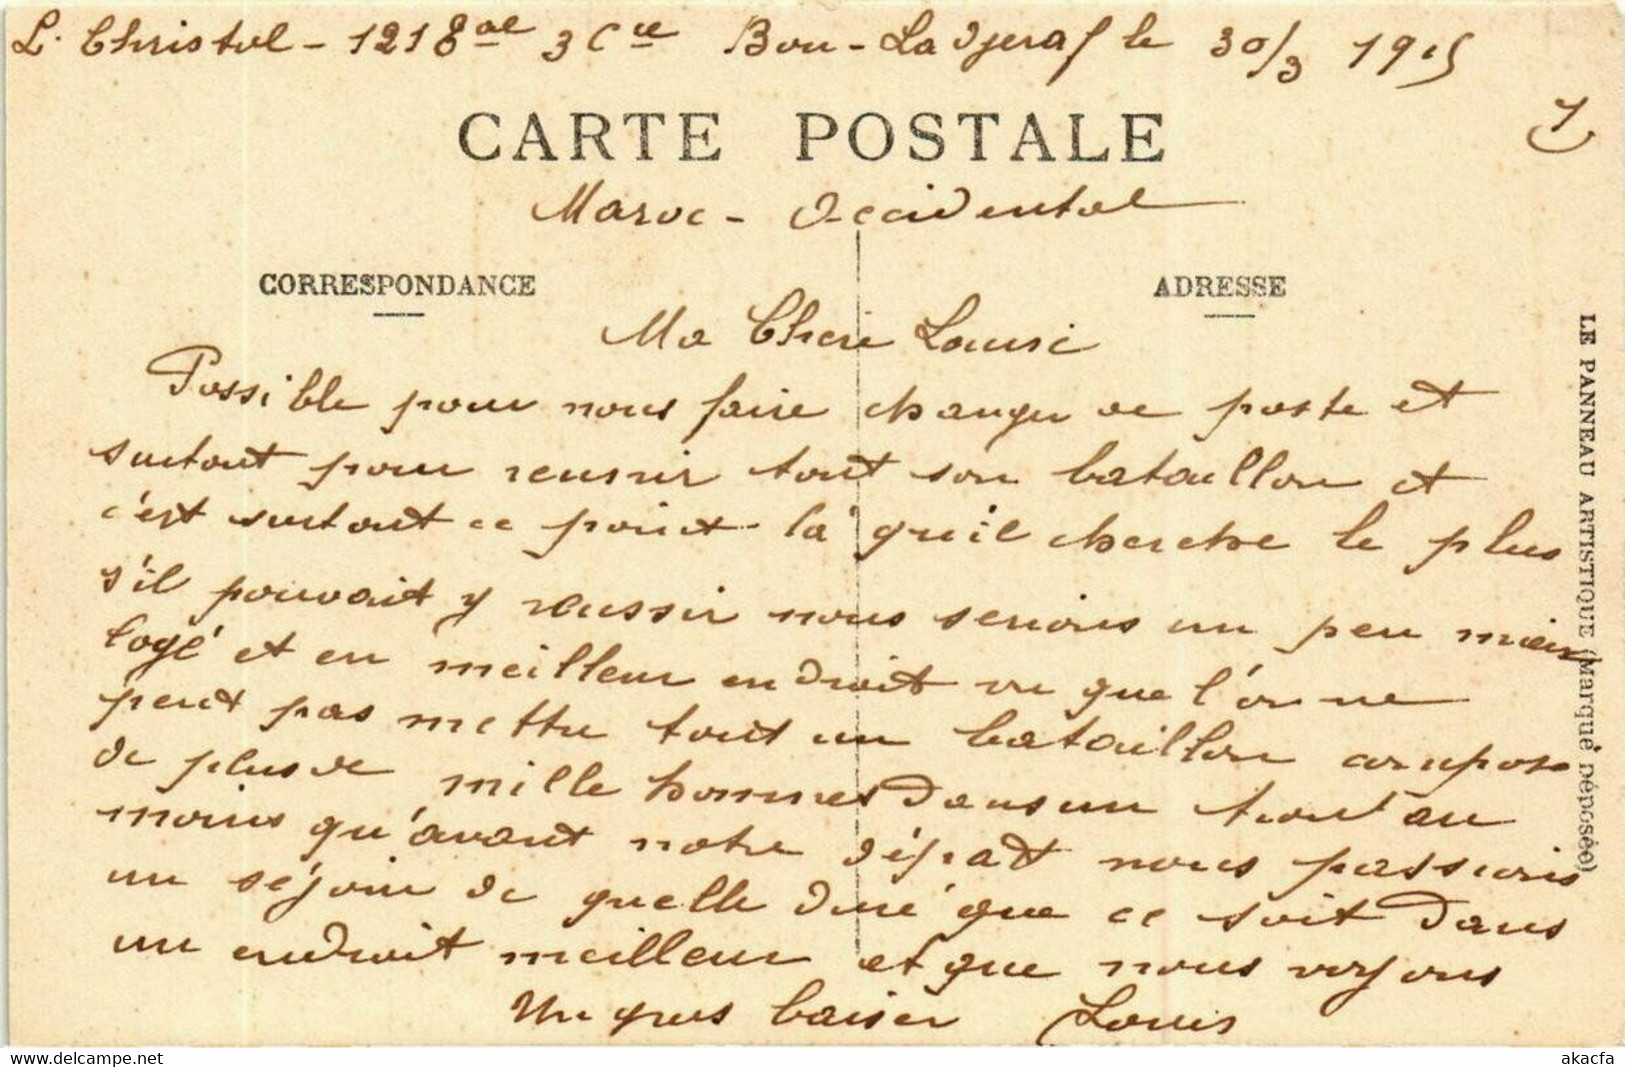 L. Christol - 121 8ème 3 Cie Bou-Ladjeraf le 30/3 1915
1
CARTE POSTALE
Maroc - Occidental
CORRESPONDANCE
ADRESSE
Ma Cheri Louise
Possible pour nous faire changer de poste et
surtout pour reunir tout son bataillon et
c'est surtout ce point là qu'il cherche le plus
s'il pouvait y reussir nous serions un peu mieux
logé et en meilleur endroit vu que l'on ne
peut pas mettre tout un bataillon compose
de plus de mille hommes dans un trou au
moins qu'avant notre départ nous passions
un séjour de quelle duré que ce soit dans
un endroit meilleur et que nous voyons
Un gros baiser Louis
LE PANNEAU ARTISTIQUE (Marque déposée)
akacfa